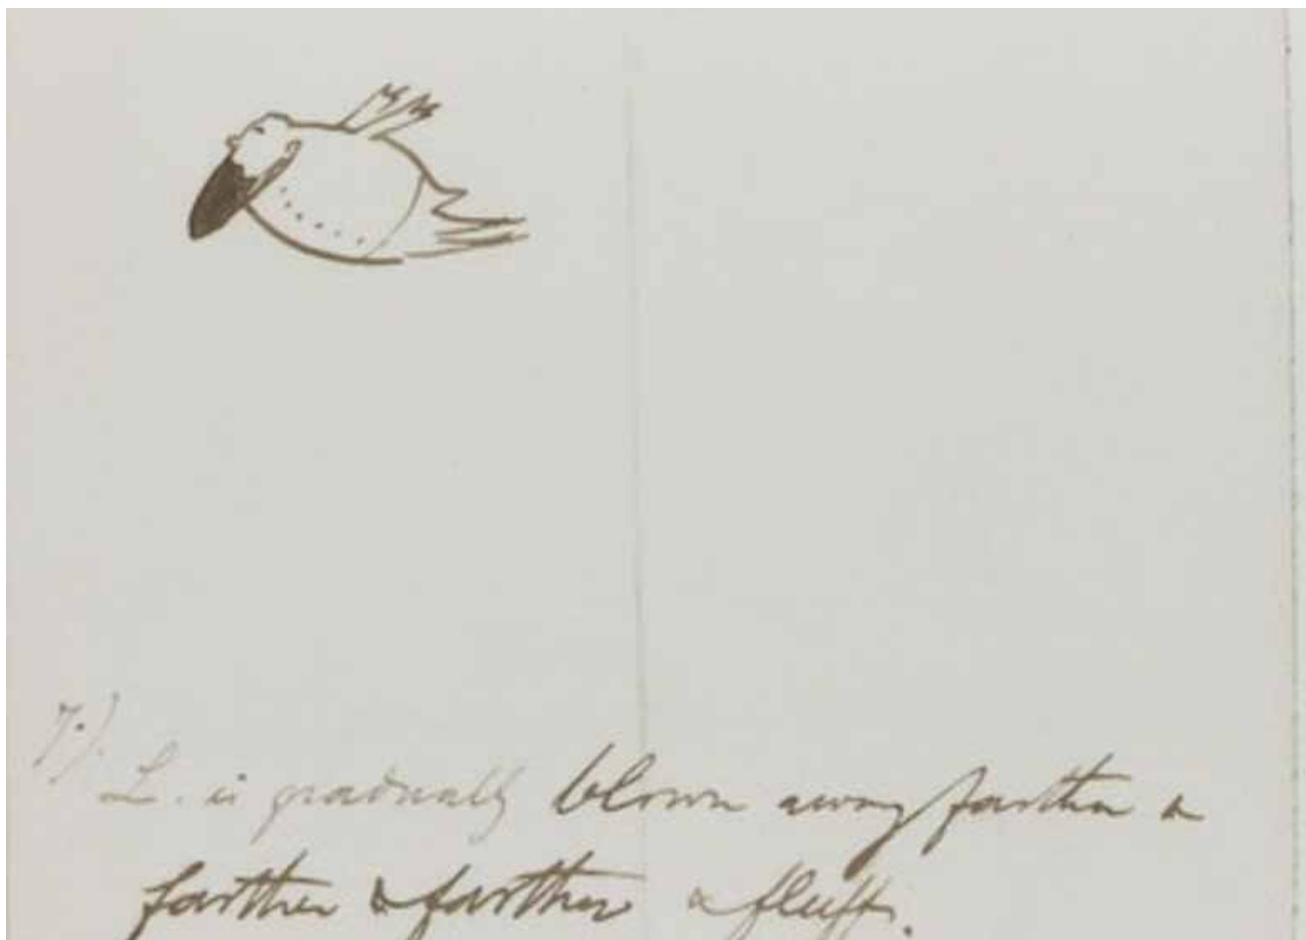 7.). L. is gradually blown away farther &
farther & farther & fluff.